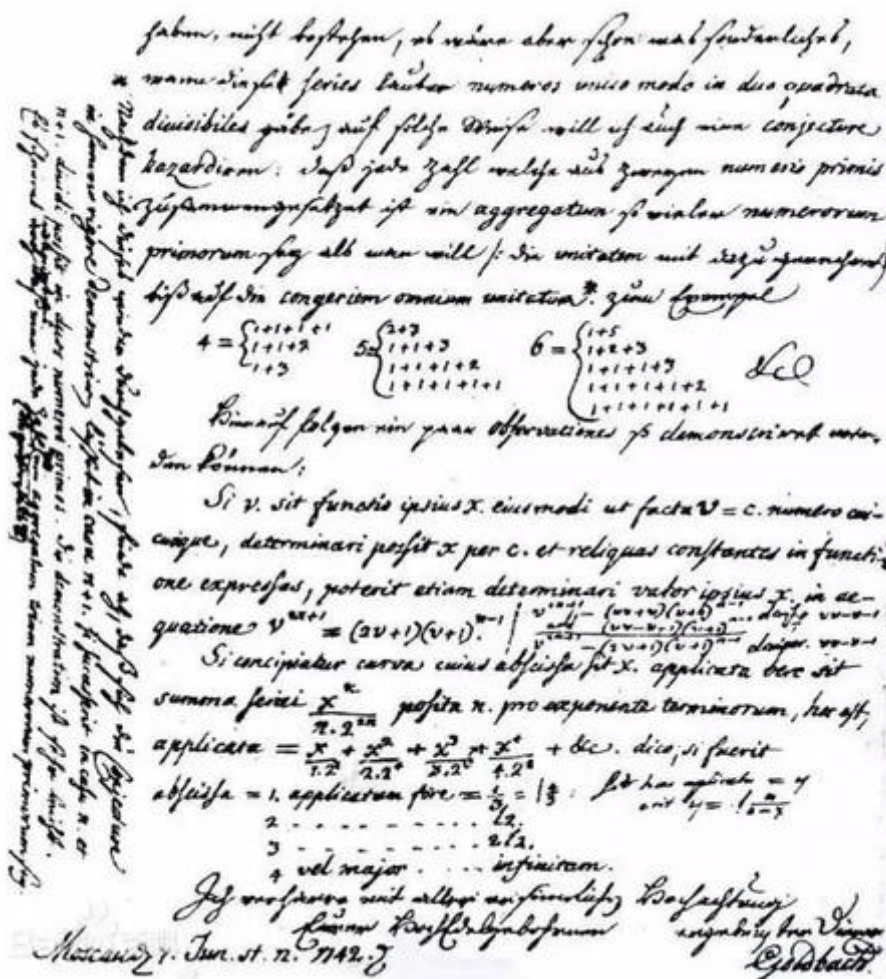 haben, nicht bestehen, es wäre aber schon was sonderliches,
wann eine series lauter numeros unico modo in duo quadrata
divisibiles gäbe, auf solche Weise will ich auch eine conjecture
hazardiren: daß jede Zahl welche aus zweyen numeris primis
zusammengesetzet ist ein aggregatum so vieler numerorum
primorum sey als man will /: die unitatem mit dazu gerechnet
biß auf die congeriem omnium unitatum*. zum Exempel
4 = { 1+1+1+1 / 1+1+2 / 1+3   5 = { 2+3 / 1+1+3 / 1+1+1+2 / 1+1+1+1+1   6 = { 1+5 / 1+2+3 / 1+1+1+3 / 1+1+1+1+2 / 1+1+1+1+1+1   &c
Hierauf folgen ein paar observationes so demonstriret wer-
den können:
Si v. sit functio ipsius x. eiusmodi ut facta v = c. numero cui-
cunque, determinari possit x per c. et reliquas constantes in functi-
one expressas, poterit etiam determinari valor ipsius x. in ae-
quatione v^{2n+1} = (2v+1)(v+1)^{n-1}.
Si concipiatur curva cuius abscissa sit x. applicata vero sit
summa seriei x^n/(n.2^{2n}) posita n. pro exponente terminorum, hoc est,
applicata = x/(1.2^2) + x^2/(2.2^4) + x^3/(3.2^6) + x^4/(4.2^8) + &c. dico, si fuerit
abscissa = 1. applicatam fore = l 4/3
2 - - - - - - l2.
3 - - - - - - 2l2.
4 vel major .... infinitam.
Ich verharre mit aller ersinnlichen Hochachtung
Eurer HochEdelgebohrnen ergebenster Diener
Moscau 7. Jun. st. n. 1742. Goldbach.
* Nachdem ich dieses wieder durchgelesen, finde ich, daß sich die conjecture
in summo rigore demonstriren läßet in casu n+1. si successerit in casu n. et
n+1. dividi possit in duos numeros primos. Die demonstration ist sehr leicht.
Es scheinet wenigstens, daß eine jede Zahl ein aggregatum trium numerorum primorum sey.